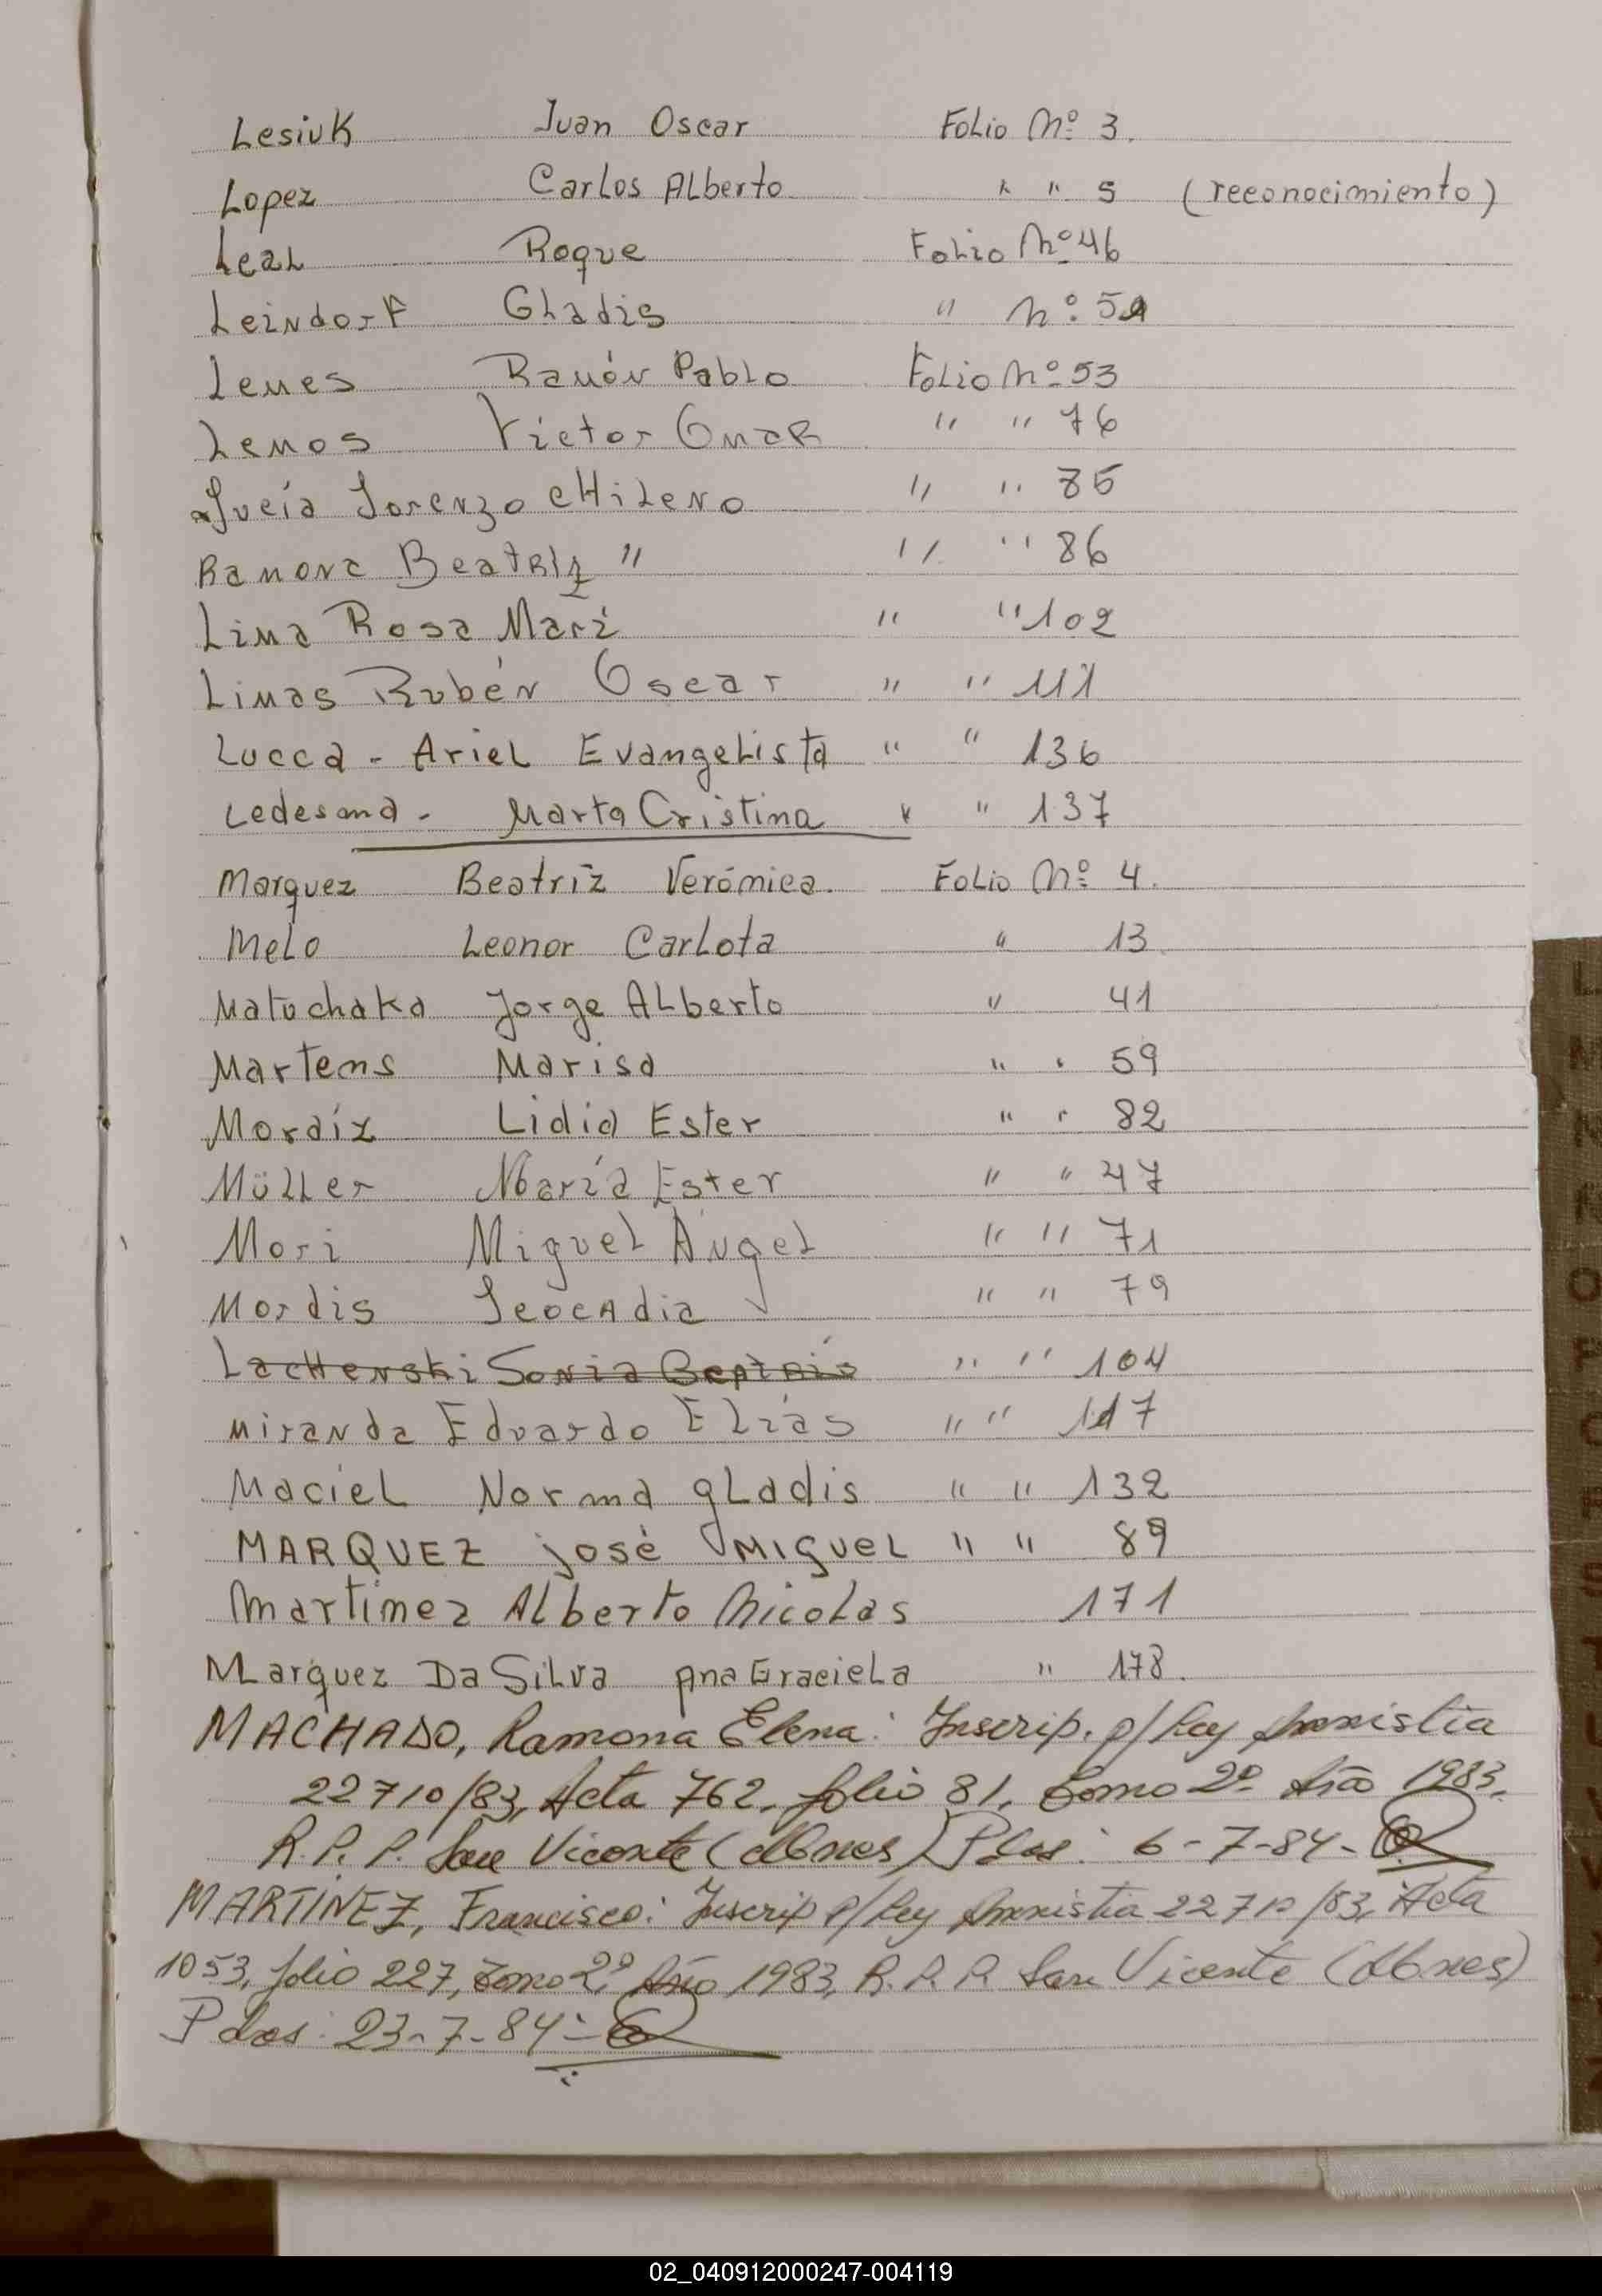 Lesiuk Juan Oscar Folio Nº 3.
Lopez Carlos Alberto " " 5 (reconocimiento)
Leal Roque Folio Nº 46
Leindorf Gladis " Nº 51
Lemes Ramón Pablo Folio Nº 53
Lemos Victor Omar " " 76
Lucía Lorenzo CHileno " " 85
Ramona Beatriz " " " 86
Lima Rosa Mari " " 102
Limas Rubén Oscar " " 111
Lucca - Ariel Evangelista " " 136
Ledesma - Marta Cristina " " 137
Marquez Beatriz Verónica. Folio Nº 4.
Melo Leonor Carlota " 13
Matuchaka Jorge Alberto " 41
Martens Marisa " " 59
Moraiz Lidia Ester " " 82
Müller María Ester " " 47
Mori Miguel Ángel " " 71
Mordis Leocadia " " 79
Lachenski Sonia Beatris " " 104
Miranda Eduardo Elías " " 117
Maciel Norma gladis " " 132
MARQUEZ josé MIguel " " 89
Martinez Alberto Nicolas 171
Marquez Da Silva Ana Graciela " 178.
MACHADO, Ramona Elena: Inscrip. p/ Ley Amnistia
22710/83, Acta 762, folio 81, Tomo 2º Año 1983,
R.P.P. San Vicente (Mnes) Pdas: 6-7-84-
MARTINEZ, Francisco: Inscrip p/ Ley Amnistia 22710/83, Acta
1053, folio 227, Tomo 2º Año 1983, R.P.P. San Vicente (Mnes)
Pdas: 23-7-84-
L
M
N
O
P
Q
R
S
T
U
V
02_040912000247-004119